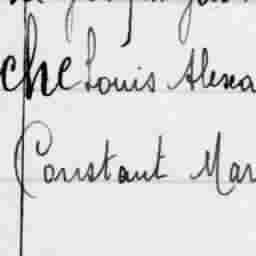 che Louis Alexa
Constant Mar